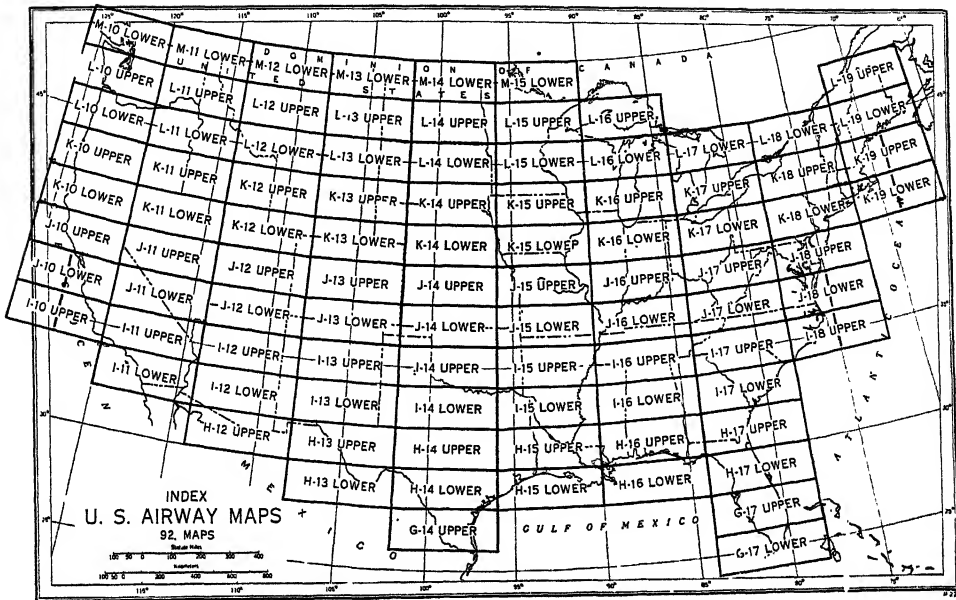 125° 120° 115° 110° 105° 100° 95° 90° 85° 80° 75° 70°
M-10 LOWER M-11 LOWER M-12 LOWER M-13 LOWER M-14 LOWER M-15 LOWER
DOMINION OF CANADA
UNITED STATES
L-10 UPPER L-11 UPPER L-12 UPPER L-13 UPPER L-14 UPPER L-15 UPPER L-16 UPPER L-19 UPPER
45°
L-10 LOWER L-11 LOWER L-12 LOWER L-13 LOWER L-14 LOWER L-15 LOWER L-16 LOWER L-17 LOWER L-18 LOWER L-19 LOWER
K-10 UPPER K-11 UPPER K-12 UPPER K-13 UPPER K-14 UPPER K-15 UPPER K-16 UPPER K-17 UPPER K-18 UPPER K-19 UPPER
K-10 LOWER K-11 LOWER K-12 LOWER K-13 LOWER K-14 LOWER K-15 LOWER K-16 LOWER K-17 LOWER K-18 LOWER K-19 LOWER
J-10 UPPER J-11 UPPER J-12 UPPER J-13 UPPER J-14 UPPER J-15 UPPER J-16 UPPER J-17 UPPER J-18 UPPER
J-10 LOWER J-11 LOWER J-12 LOWER J-13 LOWER J-14 LOWER J-15 LOWER J-16 LOWER J-17 LOWER J-18 LOWER
I-10 UPPER I-11 UPPER I-12 UPPER I-13 UPPER I-14 UPPER I-15 UPPER I-16 UPPER I-17 UPPER I-18 UPPER
I-11 LOWER I-12 LOWER I-13 LOWER I-14 LOWER I-15 LOWER I-16 LOWER I-17 LOWER
H-12 UPPER H-13 UPPER H-14 UPPER H-15 UPPER H-16 UPPER H-17 UPPER
H-13 LOWER H-14 LOWER H-15 LOWER H-16 LOWER H-17 LOWER
G-14 UPPER G-17 UPPER
G-17 LOWER
MEXICO
GULF OF MEXICO
ATLANTIC OCEAN
30°
INDEX
U. S. AIRWAY MAPS
92, MAPS
Statute Miles
100 50 0 100 200 300 400
Kilometers
100 50 0 200 400 600 800
115° 110° 105° 100° 95° 90° 85° 80° 75°